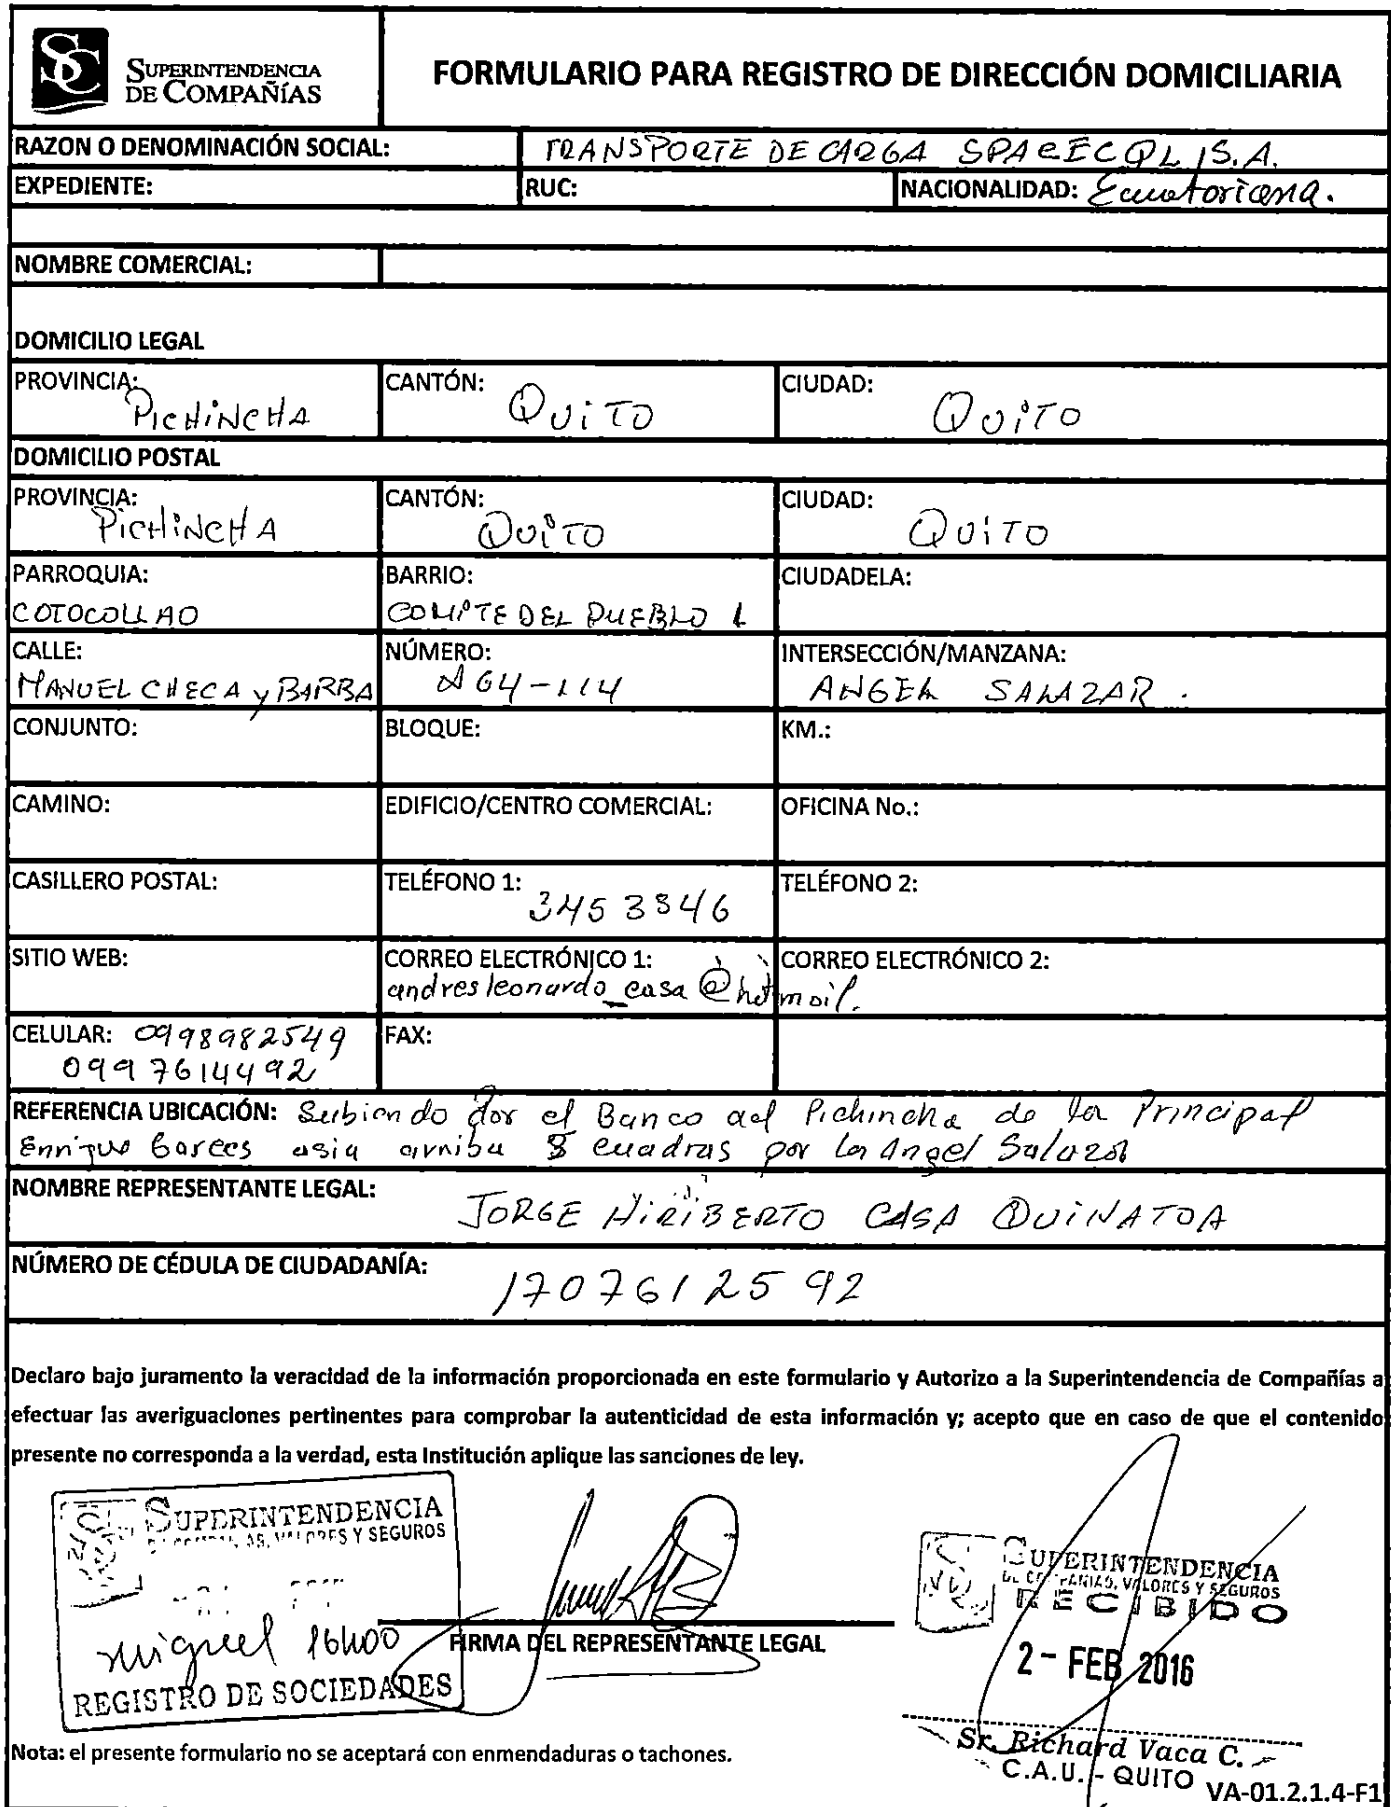 SUPERINTENDENCIA
DE COMPAÑÍAS
FORMULARIO PARA REGISTRO DE DIRECCIÓN DOMICILIARIA
RAZON O DENOMINACIÓN SOCIAL: TRANSPORTE DE CARGA SPARECQL S.A.
EXPEDIENTE: RUC: NACIONALIDAD: Ecuatoriana.
NOMBRE COMERCIAL:
DOMICILIO LEGAL
PROVINCIA: PICHINCHA CANTÓN: QUITO CIUDAD: QUITO
DOMICILIO POSTAL
PROVINCIA: PICHINCHA CANTÓN: QUITO CIUDAD: QUITO
PARROQUIA: BARRIO: CIUDADELA:
COTOCOLLAO COMITE DEL PUEBLO 1
CALLE: NÚMERO: INTERSECCIÓN/MANZANA:
MANUEL CHECA y BARBA N64-114 ANGEL SALAZAR.
CONJUNTO: BLOQUE: KM.:
CAMINO: EDIFICIO/CENTRO COMERCIAL: OFICINA No.:
CASILLERO POSTAL: TELÉFONO 1: 3453346 TELÉFONO 2:
SITIO WEB: CORREO ELECTRÓNICO 1: CORREO ELECTRÓNICO 2:
andresleonardo_casa@hotmail.
CELULAR: 0998982549 FAX:
0997614492
REFERENCIA UBICACIÓN: Subiendo por el Banco del Pichincha de la Principal
Enrique Garces asia arriba cuadras por la Angel Salazar
NOMBRE REPRESENTANTE LEGAL:
JORGE HIRIBERTO CASA QUINATOA
NÚMERO DE CÉDULA DE CIUDADANÍA:
1707612592
Declaro bajo juramento la veracidad de la información proporcionada en este formulario y Autorizo a la Superintendencia de Compañías a
efectuar las averiguaciones pertinentes para comprobar la autenticidad de esta información y; acepto que en caso de que el contenido
presente no corresponda a la verdad, esta Institución aplique las sanciones de ley.
SUPERINTENDENCIA
VALORES Y SEGUROS
Miguel 16h00
REGISTRO DE SOCIEDADES
FIRMA DEL REPRESENTANTE LEGAL
SUPERINTENDENCIA
DE COMPAÑIAS, VALORES Y SEGUROS
RECIBIDO
2 - FEB 2016
Sr. Richard Vaca C.
C.A.U. - QUITO
Nota: el presente formulario no se aceptará con enmendaduras o tachones.
VA-01.2.1.4-F1